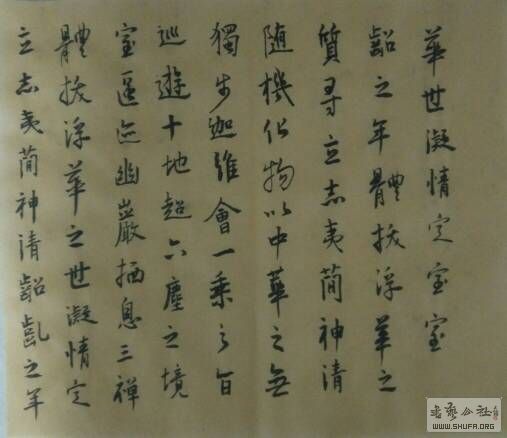 華世凝情定室室
齠之年體拔浮華之
質尋立志夷蕳神清
随機化物以中華之無
獨步迦維會一乗之旨
巡遊十地超六塵之境
室匿迹幽巖栖息三禅
體拔浮華之世凝情定
立志夷蕳神清齠齓之年
书艺公社
WWW.SHUFA.ORG